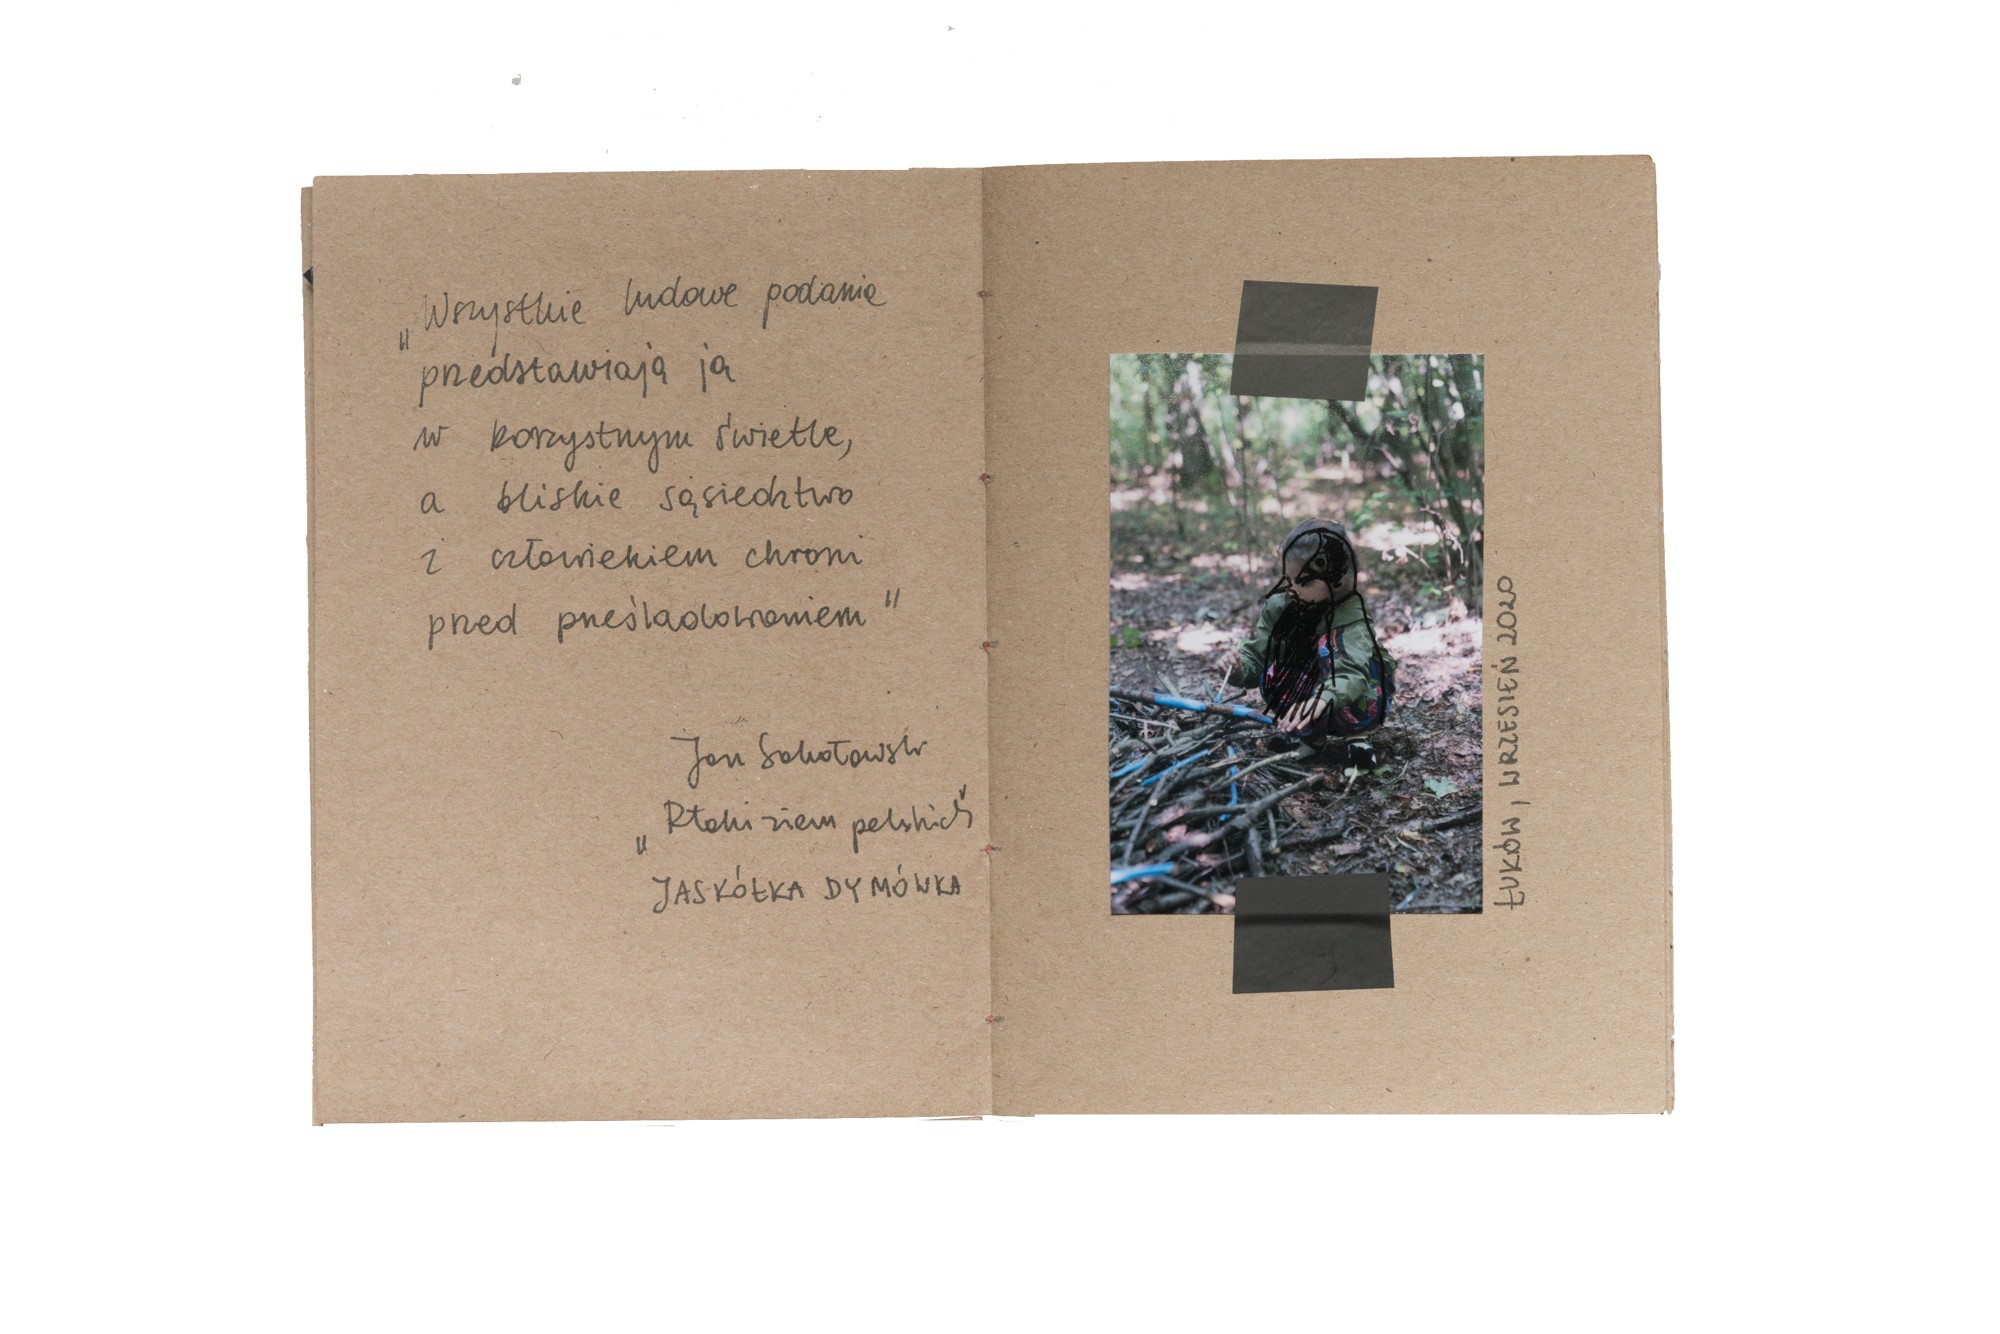 „Wszystkie ludowe podanie
przedstawiają ją
w korzystnym świetle,
a bliskie sąsiedztwo
z człowiekiem chroni
przed prześladowaniem"
Jan Sokołowski
„Ptaki ziem polskich"
JASKÓŁKA DYMÓWKA
ŁUKÓW, WRZESIEŃ 2020